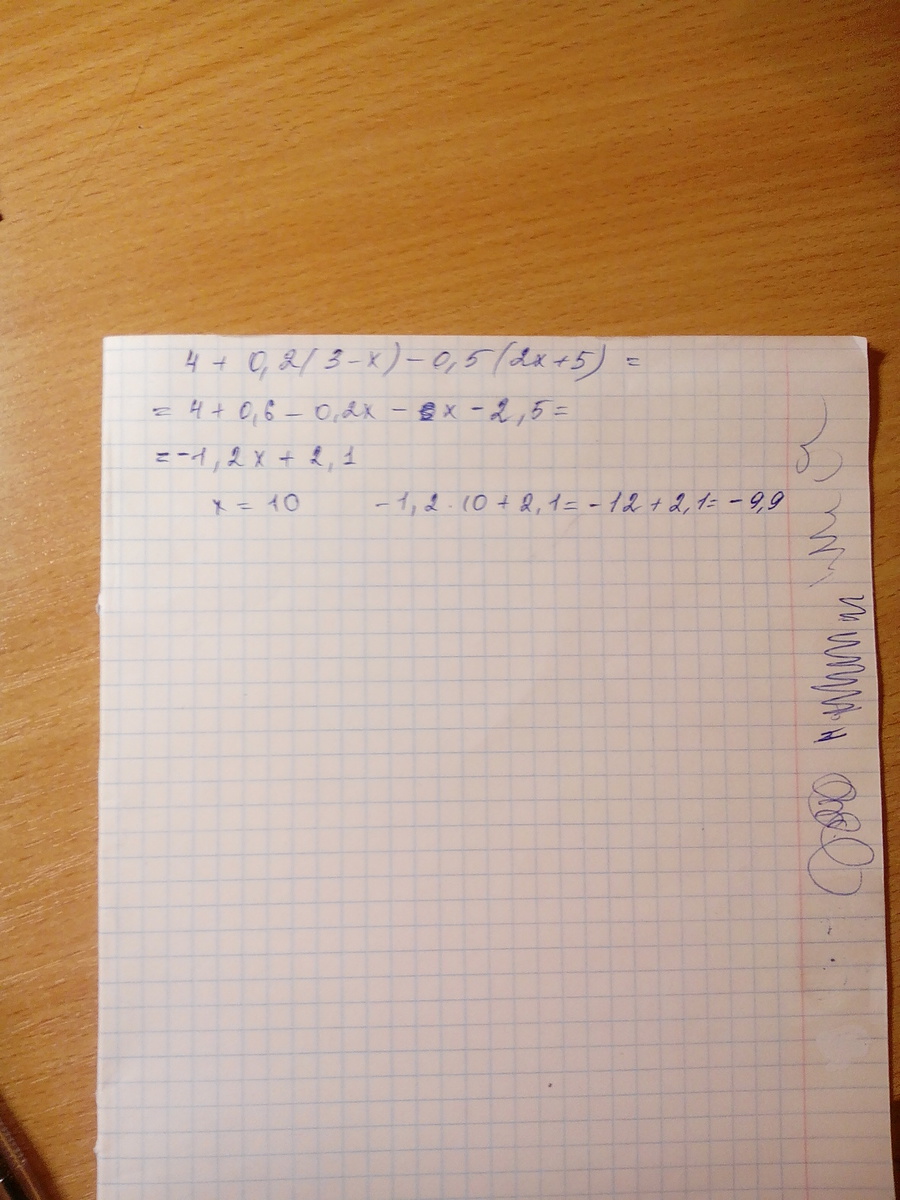 4 + 0,2(3-x) - 0,5(2x+5) =
= 4 + 0,6 - 0,2x - x - 2,5 =
= -1,2x + 2,1
x = 10 -1,2·10 + 2,1 = -12 + 2,1 = -9,9